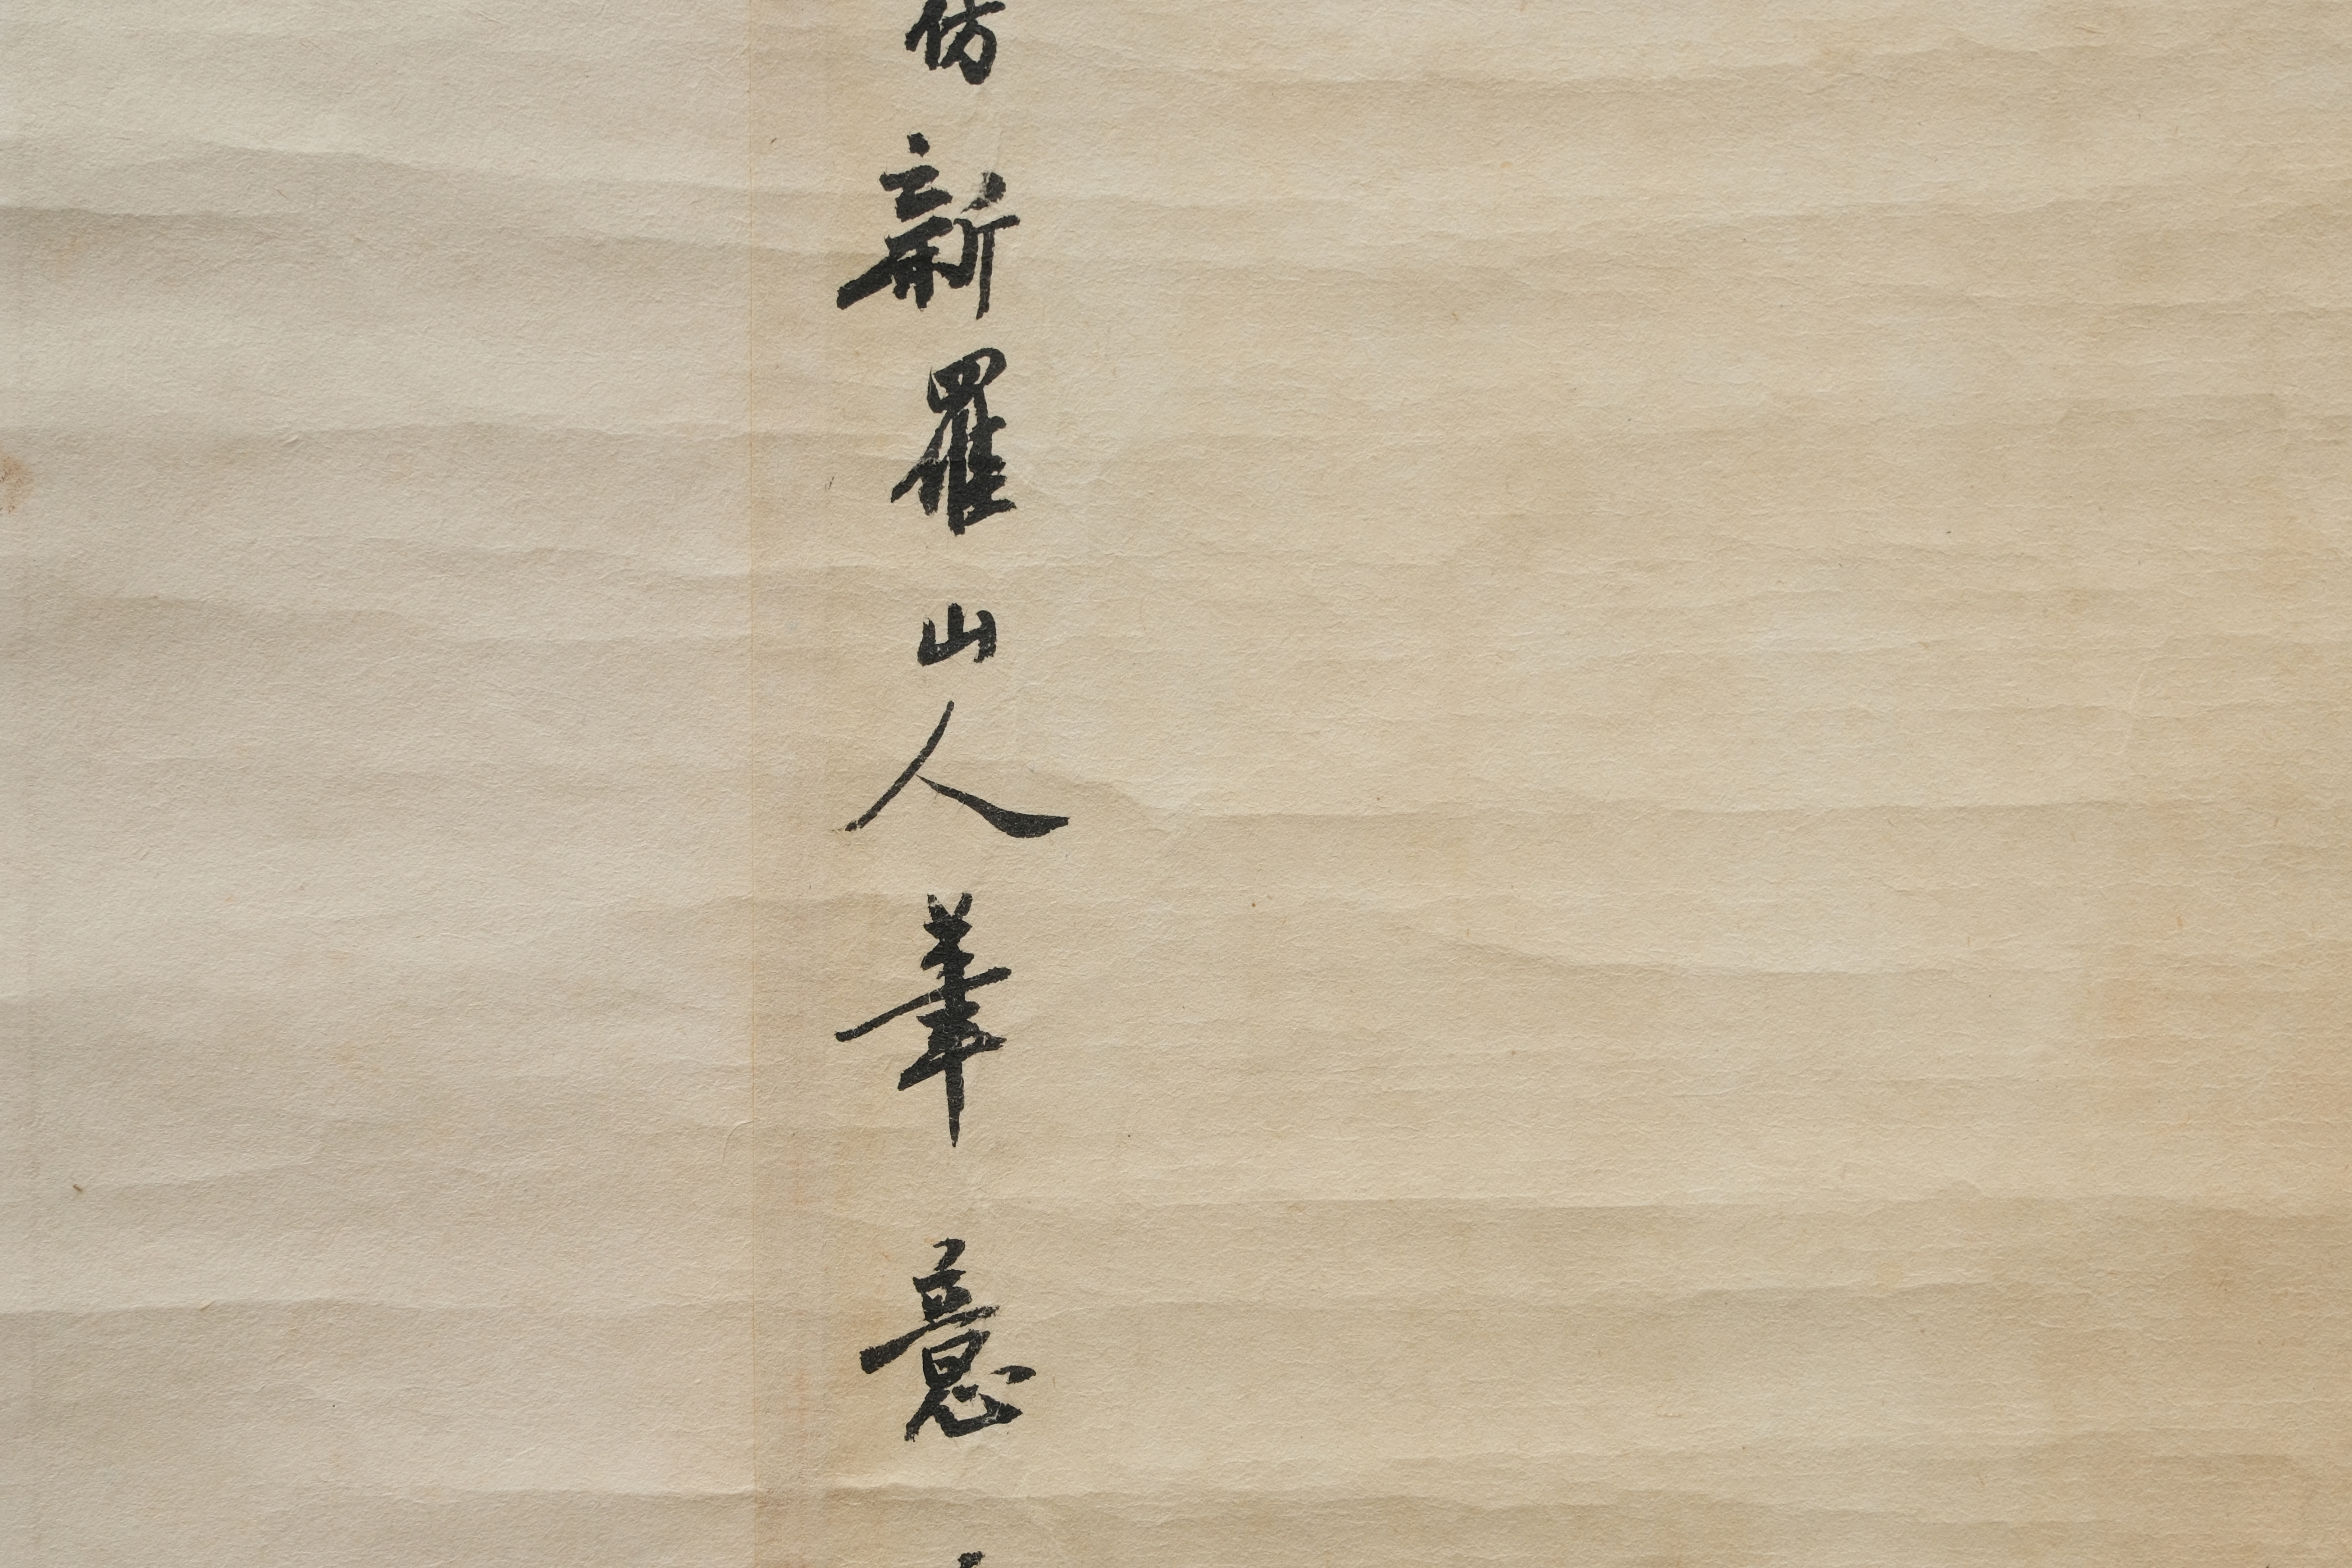 仿新羅山人筆意